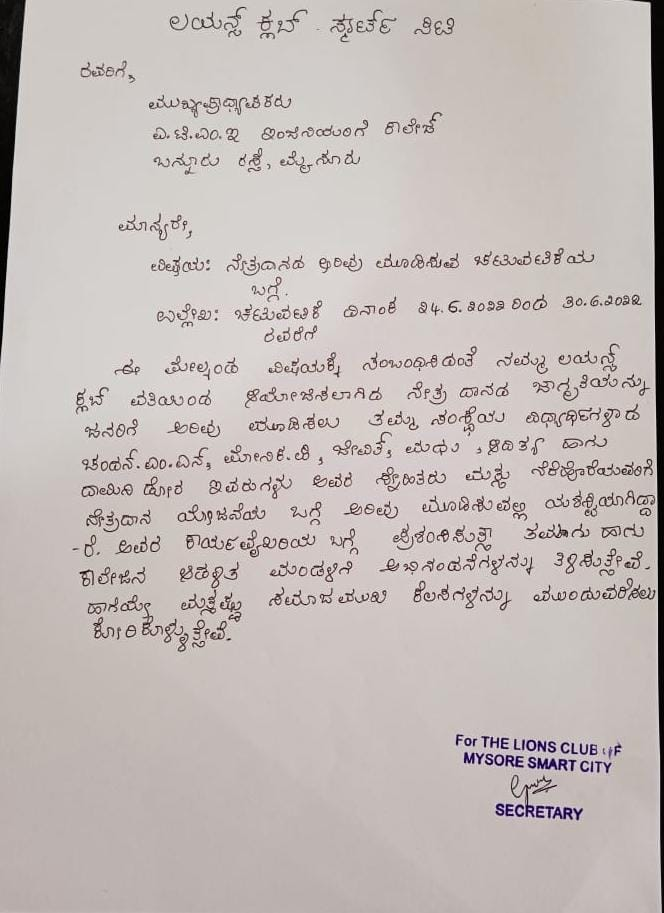 ಲಯನ್ಸ್ ಕ್ಲಬ್ . ಸ್ಮಾರ್ಟ್ ಸಿಟಿ
ರವರಿಗೆ,
ಮುಖ್ಯಪ್ರಾಧ್ಯಾಪಕರು
ಎ.ಟಿ.ಎಂ.ಇ ಇಂಜನಿಯರಿಗೆ ಕಾಲೇಜ್
ಬನ್ನೂರು ರಸ್ತೆ, ಮೈಸೂರು
ಮಾನ್ಯರೇ,
ವಿಷಯ: ನೇತ್ರದಾನದ ಅರಿವು ಮೂಡಿಸುವ ಚಟುವಟಿಕೆಯ
ಬಗ್ಗೆ.
ಉಲ್ಲೇಖ: ಚಟುವಟಿಕೆ ದಿನಾಂಕ 24.6.2022 ರಿಂದ 30.6.2022
ರವರೆಗೆ
ಈ ಮೇಲ್ಕಂಡ ವಿಷಯಕ್ಕೆ ಸಂಬಂಧಿಸಿದಂತೆ ನಮ್ಮ ಲಯನ್ಸ್
ಕ್ಲಬ್ ವತಿಯಿಂದ ಆಯೋಜಿಸಲಾಗಿದ ನೇತ್ರ ದಾನದ ಜಾಗೃತಿಯನ್ನು
ಜನರಿಗೆ ಅರಿವು ಮೂಡಿಸಲು ತಮ್ಮ ಸಂಸ್ಥೆಯ ವಿಧ್ಯಾರ್ಥಿಗಳಾದ
ಚಂದನ್.ಎಂ.ಎನ್, ಮೋನಿಕ.ಪಿ, ಜೀವಿತ್, ಮಧು, ಆದಿತ್ಯ ಹಾಗು
ದಾಮಿನಿ ಡೋರ ಇವರುಗಳು ಅವರ ಸ್ನೇಹಿತರು ಮತ್ತು ನೆರೆಹೊರೆಯವರಿಗೆ
ನೇತ್ರದಾನ ಯೋಜನೆಯ ಬಗ್ಗೆ ಅರಿವು ಮೂಡಿಸುವಲ್ಲಿ ಯಶಸ್ವಿಯಾಗಿದ್ದಾ
-ರೆ. ಅವರ ಕಾರ್ಯವೈಖರಿಯ ಬಗ್ಗೆ ಪ್ರಶಂಸಿಸುತ್ತಾ ತಮಗು ಹಾಗು
ಕಾಲೇಜಿನ ಆಡಳಿತ ಮಂಡಳಿಗೆ ಅಭಿನಂದನೆಗಳನ್ನು ತಿಳಿಸುತ್ತೇವೆ.
ಹಾಗೆಯೇ ಮತ್ತಷ್ಟು ಸಮಾಜಮುಖಿ ಕೆಲಸಗಳನ್ನು ಮುಂದುವರಿಸಲು
ಕೋರಿಕೊಳ್ಳುತ್ತೇವೆ.
For THE LIONS CLUB OF
MYSORE SMART CITY
SECRETARY